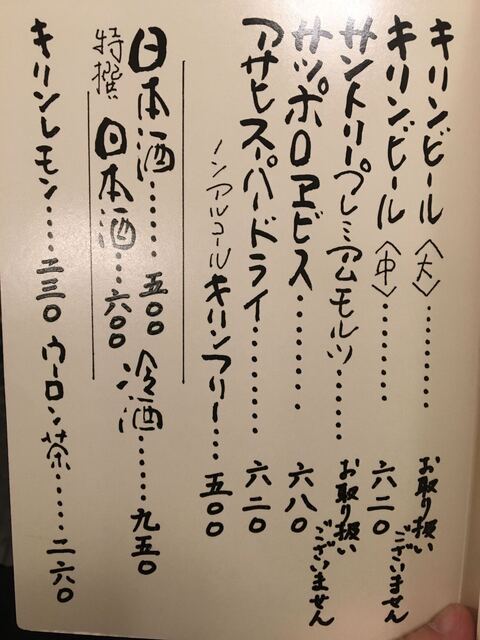 キリンビール〈大〉……… お取り扱いございません
キリンビール〈中〉……… 六二〇
サントリープレミアムモルツ…… お取り扱いございません
サッポロヱビス……… 六八〇
アサヒスーパードライ……… 六二〇
ノンアルコールキリンフリー…… 五〇〇
日本酒……… 五〇〇 冷酒……… 九五〇
特撰日本酒…… 六〇〇
キリンレモン…… 二三〇 ウーロン茶…… 二六〇